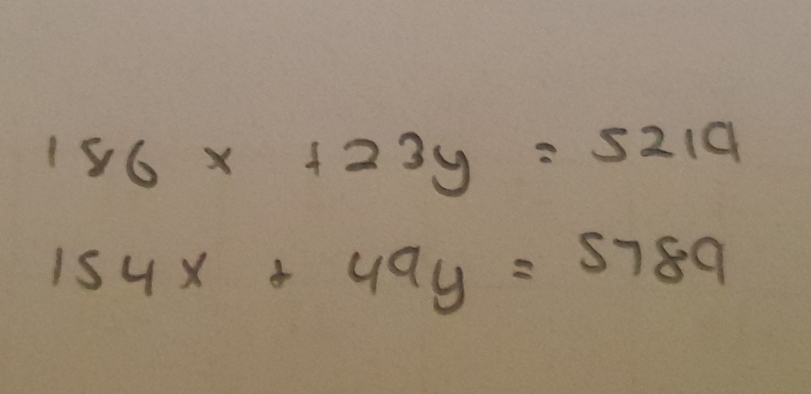 186x + 23y = 5219
154x + 49y = 5789